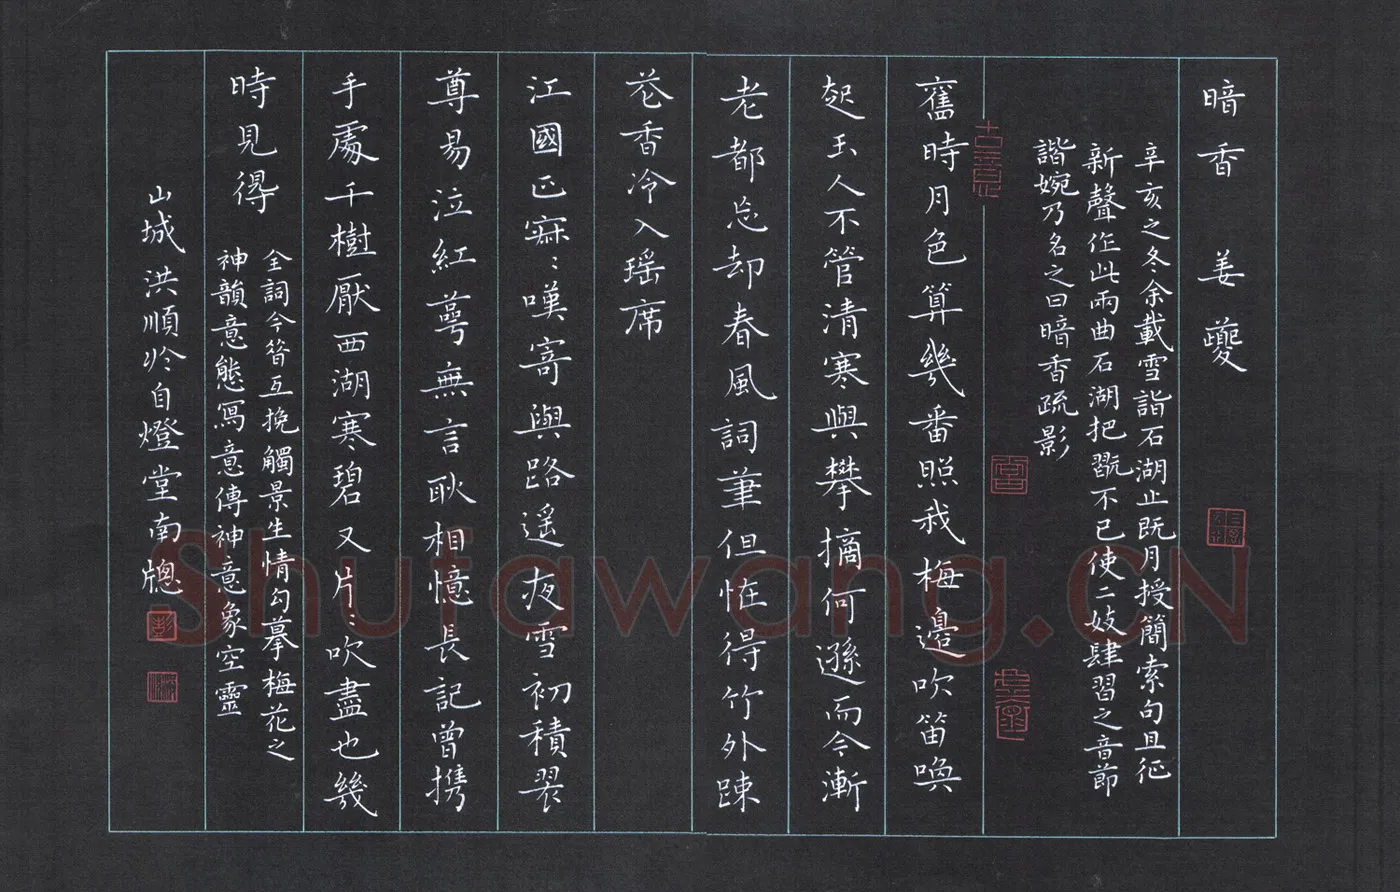 暗香 姜夔
辛亥之冬余載雪詣石湖止既月授簡索句且征
新聲作此兩曲石湖把翫不已使二妓肆習之音節
諧婉乃名之曰暗香疏影
舊時月色算幾番照我梅邊吹笛喚
起玉人不管清寒與攀摘何遜而今漸
老都忘却春風詞筆但恠得竹外踈
花香冷入瑶席
江國正寂〻嘆寄與路遥夜雪初積翠
尊易泣紅萼無言耿相憶長記曾携
手處千樹壓西湖寒碧又片〻吹盡也幾
時見得
全詞今昔互挽觸景生情勾摹梅花之
神韻意態寫意傳神意象空靈
山城洪順於自燈堂南牕
Shufawang.CN